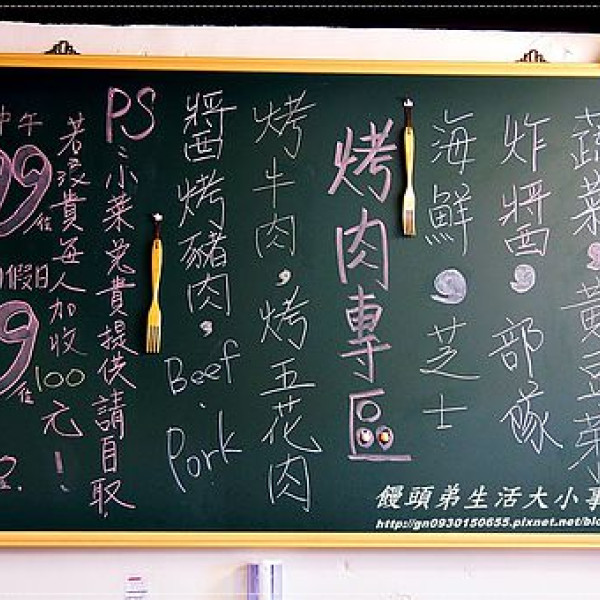 蔬菜、黃豆菜
炸醬、部隊
海鮮、芝士
烤肉專區
烤牛肉，烤五花肉
醬烤豬肉，Beef、Pork
PS：小菜免費提供請自取
若浪費每人加收100元！
中午
99/位
假日
9/位
饅頭弟生活大小事
http://gn0930150655.pixnet.net/blo